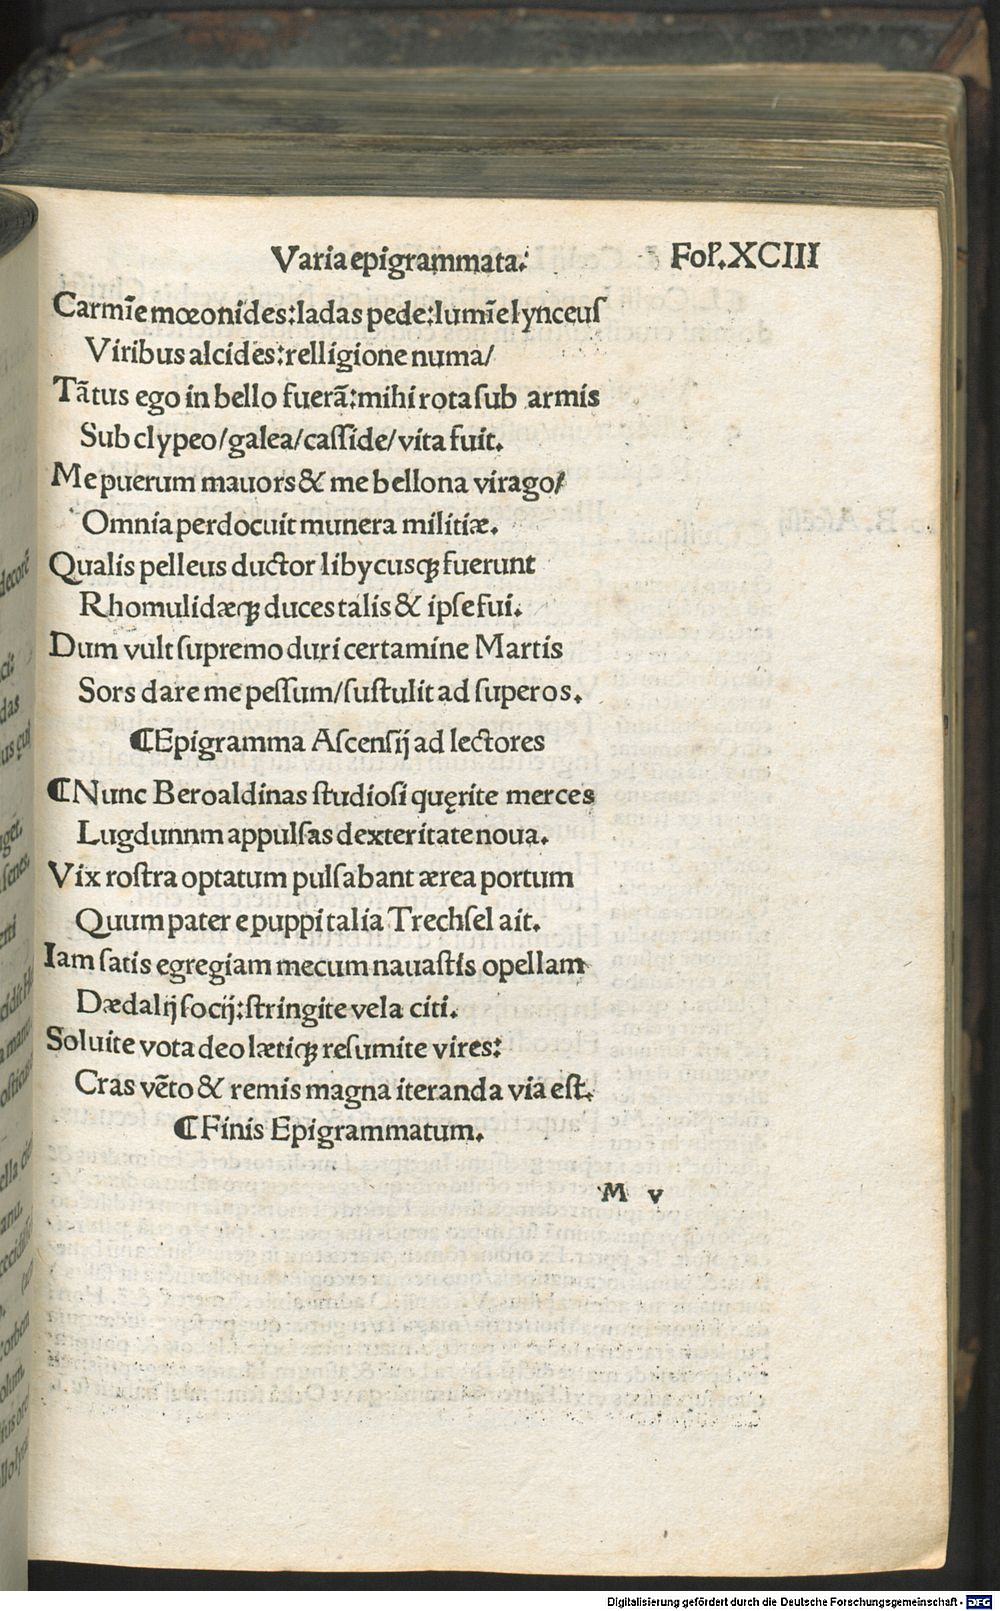 Varia epigrammata. Fol. XCIII
Carmīe mœonides: ladas pede: lumīe lynceuſ
Viribus alcides: relligione numa/
Tātus ego in bello fuerā: mihi rota ſub armis
Sub clypeo/galea/caſſide/vita fuit.
Me puerum mauors & me bellona virago/
Omnia perdocuit munera militiæ.
Qualis pelleus ductor libycuſꝙ fuerunt
Rhomulidæꝙ duces talis & ipſe fui.
Dum vult ſupremo duri certamine Martis
Sors dare me peſſum/ſuſtulit ad ſuperos.
¶Epigramma Aſcenſij ad lectores
¶Nunc Beroaldinas ſtudioſi quęrite merces
Lugdunnm appulſas dexteritate noua.
Vix roſtra optatum pulſabant ærea portum
Quum pater e puppi talia Trechſel ait.
Iam ſatis egregiam mecum nauaſtis opellam
Dædalij ſocij: ſtringite vela citi.
Soluite vota deo lætiꝙ reſumite vires:
Cras vēto & remis magna iteranda via eſt.
¶Finis Epigrammatum.
M v
Digitalisierung gefördert durch die Deutsche Forschungsgemeinschaft - DFG